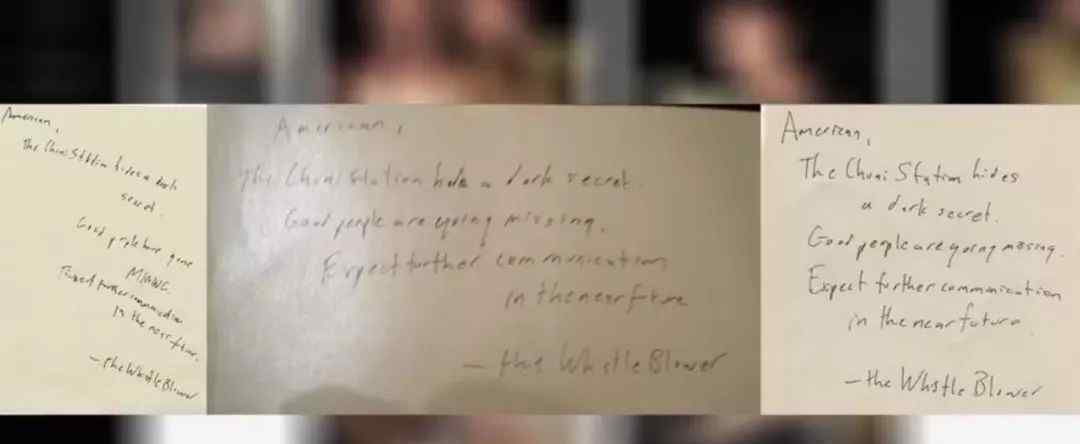 American,
The Chuni Station hides a dark
secret.
Good people have gone
missing.
Expect further communication
in the near future.
— the Whistle Blower
American,
The Chuni Station hides a dark secret.
Good people are going missing.
Expect further communication
in the near future
— the Whistle Blower
American,
The Chuni Station hides
a dark secret.
Good people are going missing.
Expect further communication
in the near future.
— the Whistle Blower